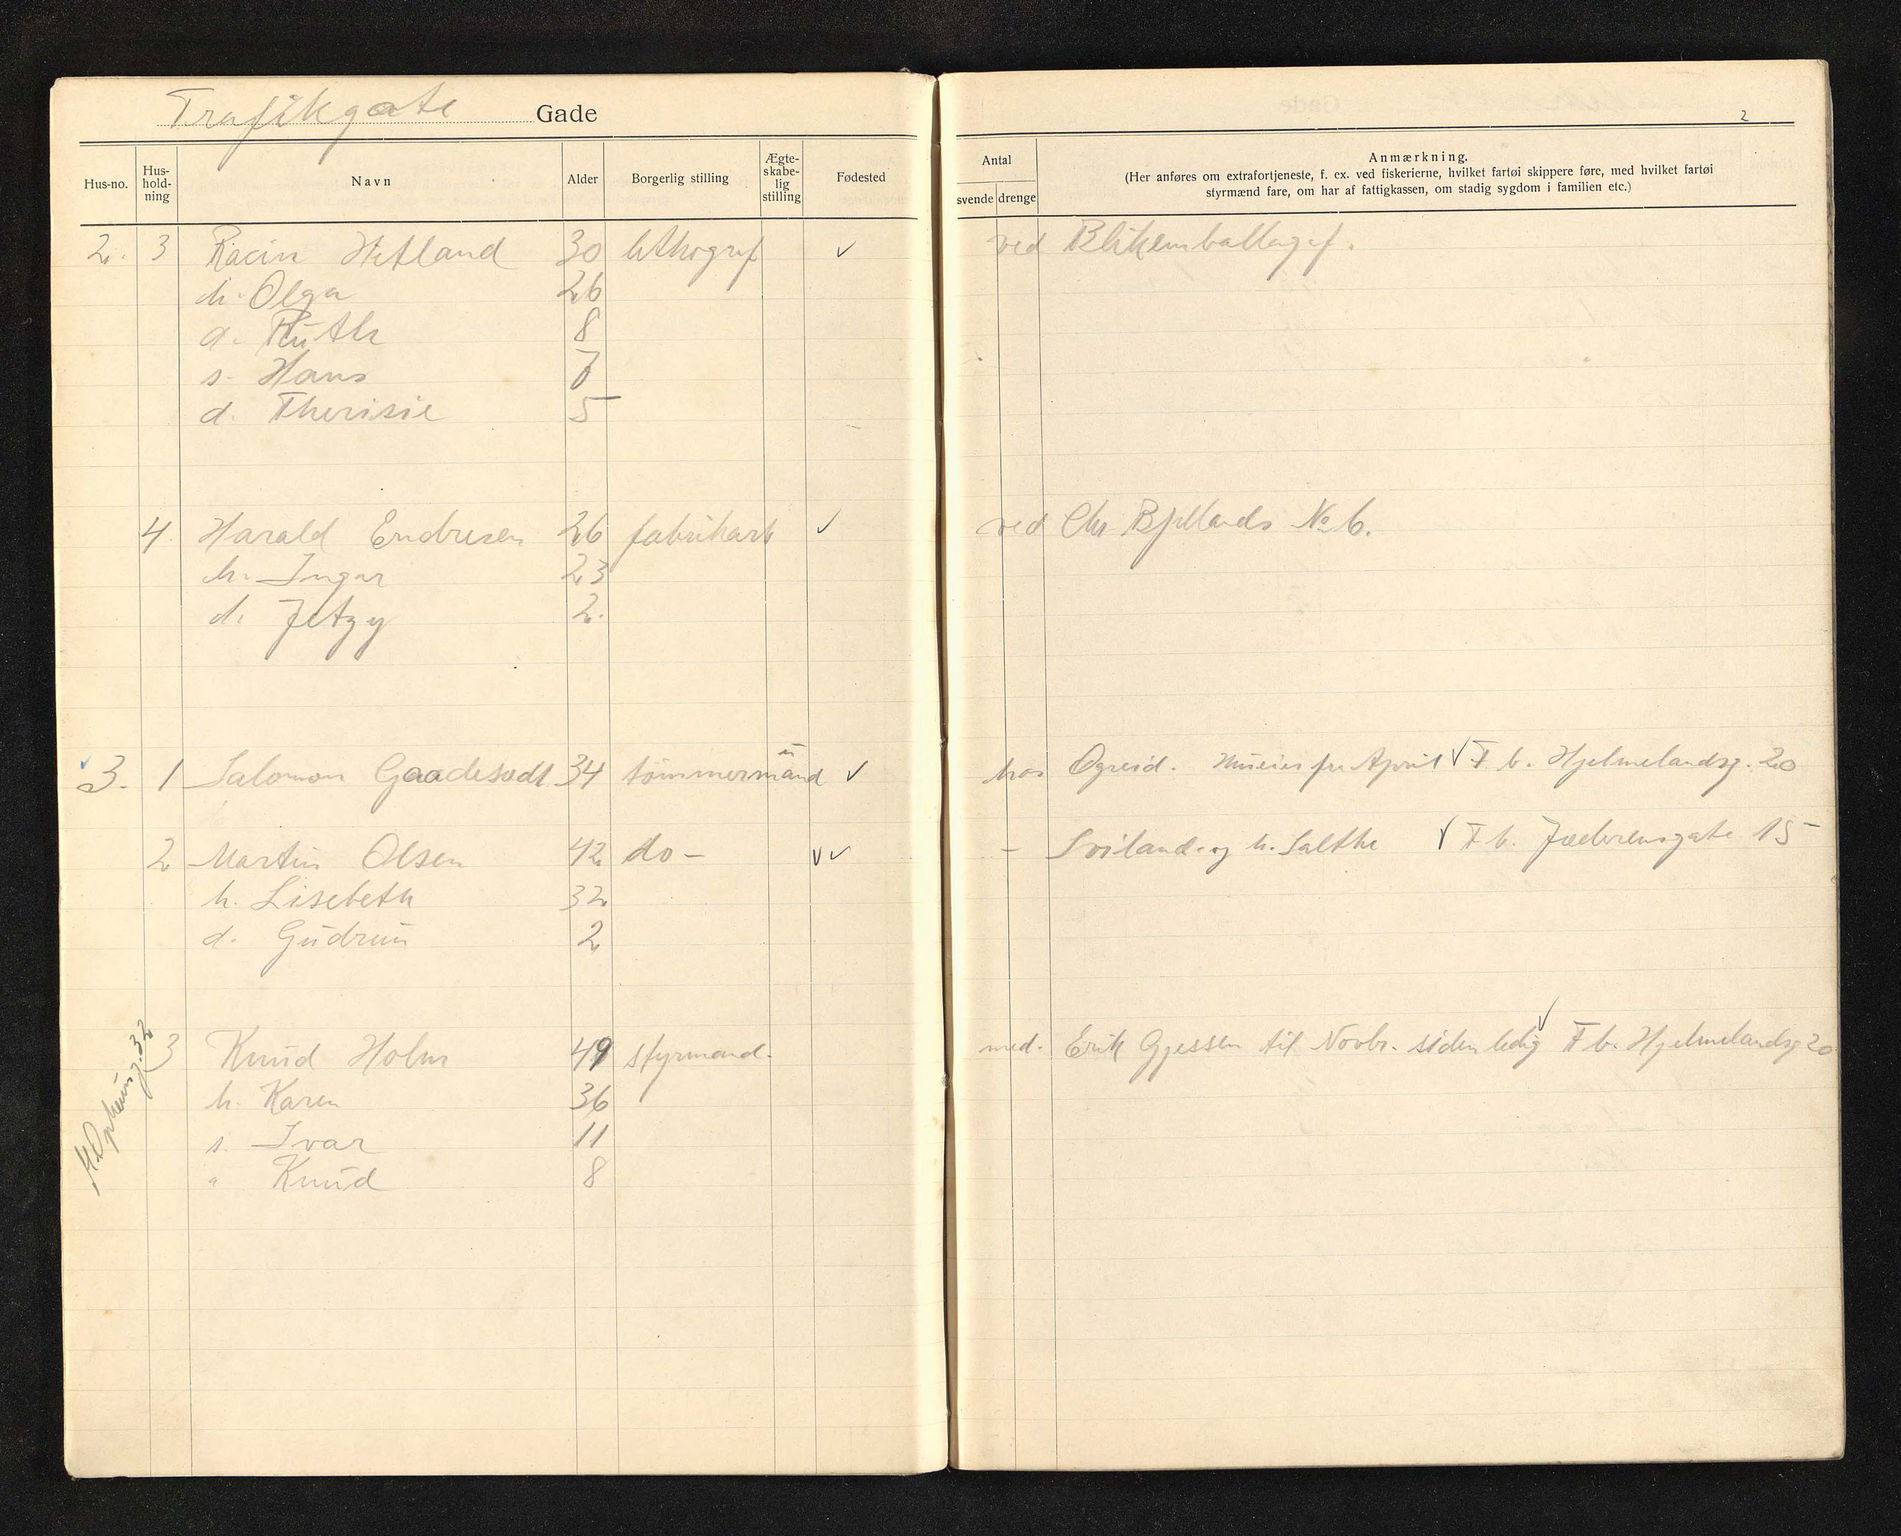 Trafikgate Gade
2
Hus-no. Hus-hold-ning Navn Alder Borgerlig stilling Ægte-skabe-lig stilling Fødested
Antal svende drenge
Anmærkning.
(Her anføres om extrafortjeneste, f. ex. ved fiskerierne, hvilket fartøi skippere føre, med hvilket fartøi
styrmænd fare, om har af fattigkassen, om stadig sygdom i familien etc.)
2. 3 Racin Hetland 30 lithograf ✓ ved Blikemballagef.
h. Olga 26
d. Ruth 8
s. Hans 7
d. Therisie 5
4. Harald Endresen 26 fabrikarb ✓ ved Chr Bjellands No 6.
h. Ingar 23
d. Jetzy 2.
✓ 3. 1 Salomon 34 tömmermand ü ✓ hos Ogreid. April ✓ F. b. Hjelmelandsg. 20
2 Martin Olsen 42 do - ✓✓ - Sviland og h. Salthe ✓ F b. Jæderensgate 15
h. Lisebeth 32
d. Gudrun 2
3 Knud Holm 49 styrmand. med. Erik Gjessen til Novbr. siden ledig ✓ F b. Hjelmelandsg 20
h. Karen 36
s. Ivar 11
" Knud 8